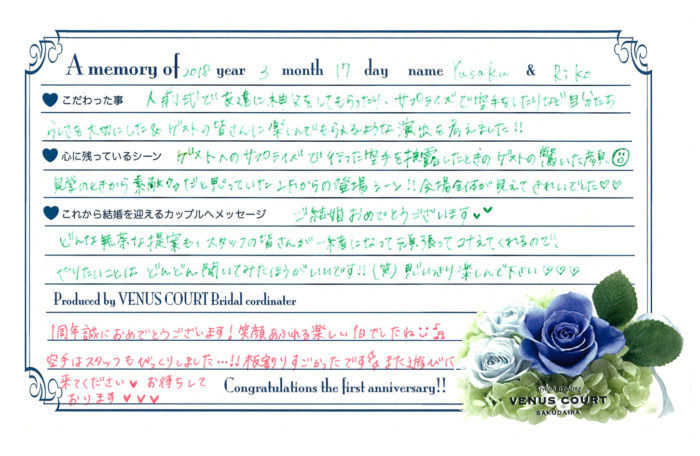 A memory of 2018 year 3 month 17 day name Yusaku & Riko
こだわった事 人前式で友達に神父をしてもらったり、サプライズで空手をしたりなど自分たち
らしさを大切にした&ゲストの皆さんに楽しんでもらえるような演出を考えました!!
心に残っているシーン ゲストへのサプライズで行った空手を披露したときのゲストの驚いた顔
見学のときから素敵だと思っていた2Fからの登場シーン!!会場全体が見えてきれいでした♡♡
これから結婚を迎えるカップルへメッセージ ご結婚おめでとうございます♥♥
どんな無茶な提案も、スタッフの皆さんが一緒になって頑張って叶えてくれるので、
やりたいことはどんどん聞いてみたほうがいいです!!(笑)思いっきり楽しんで下さい♡♡♡
Produced by VENUS COURT Bridal cordinater
1周年誠におめでとうございます!笑顔あふれる楽しい1日でしたね
空手はスタッフもびっくりしました…!!板割りすごかったですまた遊びに
来てください♥お待ちして
おります♥♥♥
Congratulations the first anniversary!!
VENUS COURT
SAKUDAIRA